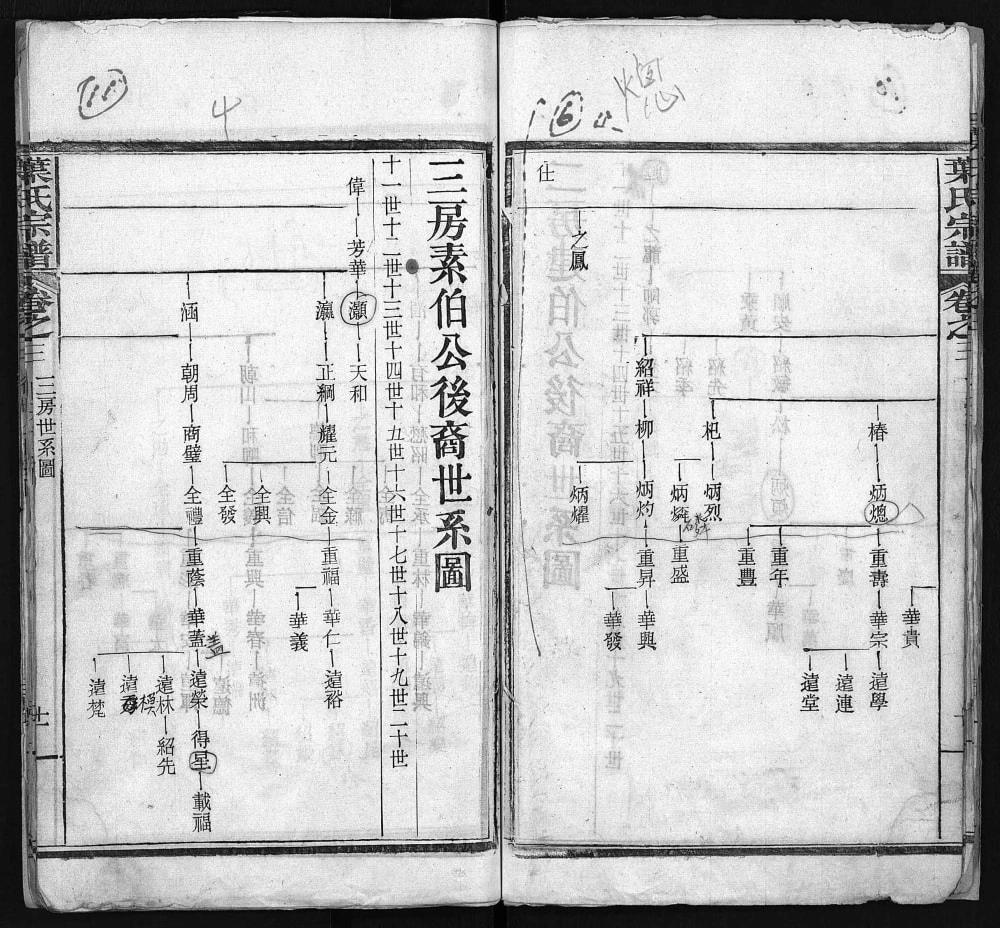 葉氏宗譜
卷之三
仕
之鳳
椿 炳熜 重壽 華宗 遠學
華貴
遠連
遠堂
重年
重豐
杞 炳烈
炳 重盛
紹祥 柳 炳灼 重昇 華興
華發
炳燿
6
三房素伯公後裔世系圖
十一世十二世十三世十四世十五世十六世十七世十八世十九世二十世
偉 芳華 灝 天和
瀛 正綱 耀元 全金 重福 華仁 遠裕
華義
全興
全發
涵 朝周 商璧 全禮 重蔭 華蓋 遠榮 得星 載福
盖
遠林 紹先
模
遠
遠梵
葉氏宗譜
卷之三
三房世系圖
十一
11